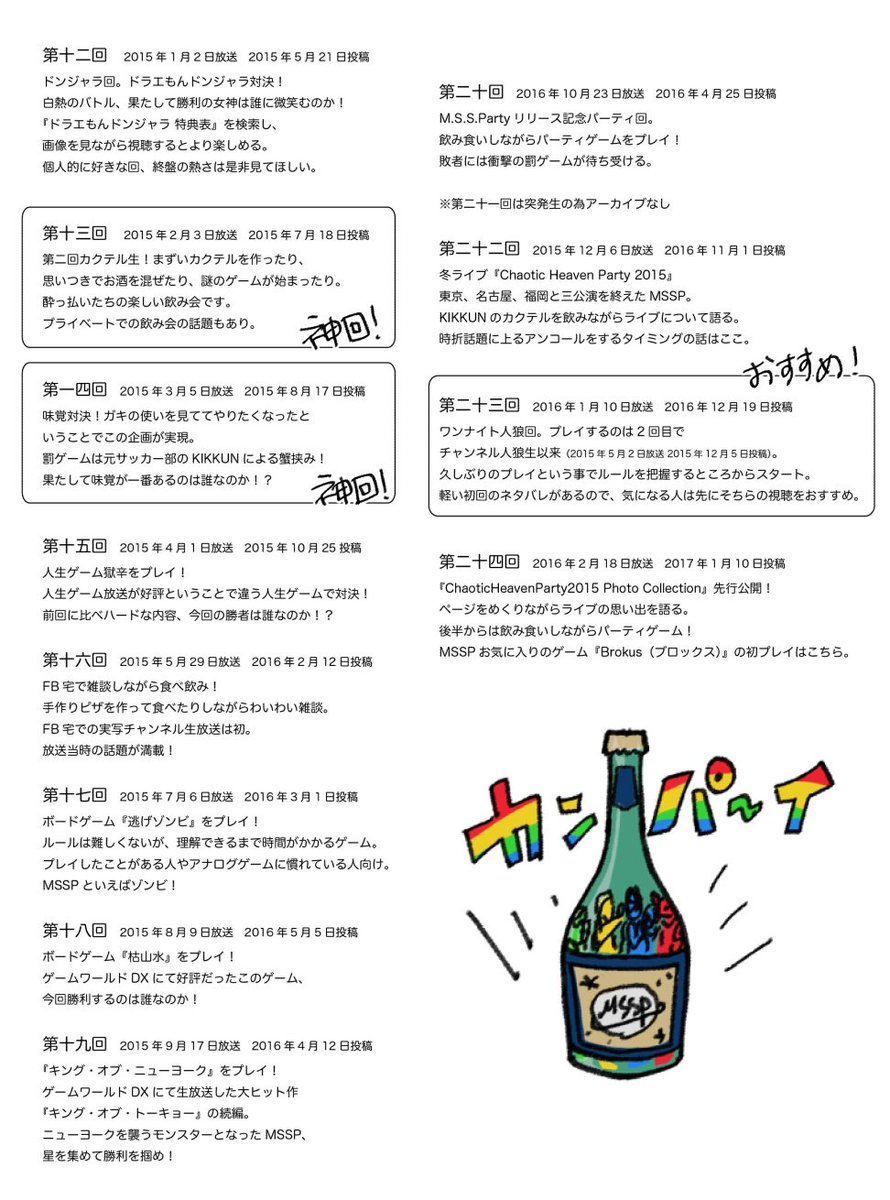 第十二回 2015年1月2日放送 2015年5月21日投稿
ドンジャラ回。ドラエもんドンジャラ対決！
白熱のバトル、果たして勝利の女神は誰に微笑むのか！
『ドラエもんドンジャラ 特典表』を検索し、
画像を見ながら視聴するとより楽しめる。
個人的に好きな回、終盤の熱さは是非見てほしい。
第十三回 2015年2月3日放送 2015年7月18日投稿
第二回カクテル生！まずいカクテルを作ったり、
思いつきでお酒を混ぜたり、謎のゲームが始まったり。
酔っ払いたちの楽しい飲み会です。
プライベートでの飲み会の話題もあり。
神回！
第一四回 2015年3月5日放送 2015年8月17日投稿
味覚対決！ガキの使いを見ててやりたくなったと
いうことでこの企画が実現。
罰ゲームは元サッカー部のKIKKUNによる蟹挟み！
果たして味覚が一番あるのは誰なのか！？
神回！
第十五回 2015年4月1日放送 2015年10月25投稿
人生ゲーム獄辛をプレイ！
人生ゲーム放送が好評ということで違う人生ゲームで対決！
前回に比べハードな内容、今回の勝者は誰なのか！？
第十六回 2015年5月29日放送 2016年2月12日投稿
FB宅で雑談しながら食べ飲み！
手作りピザを作って食べたりしながらわいわい雑談。
FB宅での実写チャンネル生放送は初。
放送当時の話題が満載！
第十七回 2015年7月6日放送 2016年3月1日投稿
ボードゲーム『逃げゾンビ』をプレイ！
ルールは難しくないが、理解できるまで時間がかかるゲーム。
プレイしたことがある人やアナログゲームに慣れている人向け。
MSSPといえばゾンビ！
第十八回 2015年8月9日放送 2016年5月5日投稿
ボードゲーム『枯山水』をプレイ！
ゲームワールドDXにて好評だったこのゲーム、
今回勝利するのは誰なのか！
第十九回 2015年9月17日放送 2016年4月12日投稿
『キング・オブ・ニューヨーク』をプレイ！
ゲームワールドDXにて生放送した大ヒット作
『キング・オブ・トーキョー』の続編。
ニューヨークを襲うモンスターとなったMSSP、
星を集めて勝利を掴め！
第二十回 2016年10月23日放送 2016年4月25日投稿
M.S.S.Partyリリース記念パーティ回。
飲み食いしながらパーティゲームをプレイ！
敗者には衝撃の罰ゲームが待ち受ける。
※第二十一回は突発生の為アーカイブなし
第二十二回 2015年12月6日放送 2016年11月1日投稿
冬ライブ『Chaotic Heaven Party 2015』
東京、名古屋、福岡と三公演を終えたMSSP。
KIKKUNのカクテルを飲みながらライブについて語る。
時折話題に上るアンコールをするタイミングの話はここ。
おすすめ！
第二十三回 2016年1月10日放送 2016年12月19日投稿
ワンナイト人狼回。プレイするのは2回目で
チャンネル人狼生以来（2015年5月2日放送2015年12月5日投稿）。
久しぶりのプレイという事でルールを把握するところからスタート。
軽い初回のネタバレがあるので、気になる人は先にそちらの視聴をおすすめ。
第二十四回 2016年2月18日放送 2017年1月10日投稿
『ChaoticHeavenParty2015 Photo Collection』先行公開！
ページをめくりながらライブの思い出を語る。
後半からは飲み食いしながらパーティゲーム！
MSSPお気に入りのゲーム『Brokus（ブロックス）』の初プレイはこちら。
カンパ～イ
MSSP